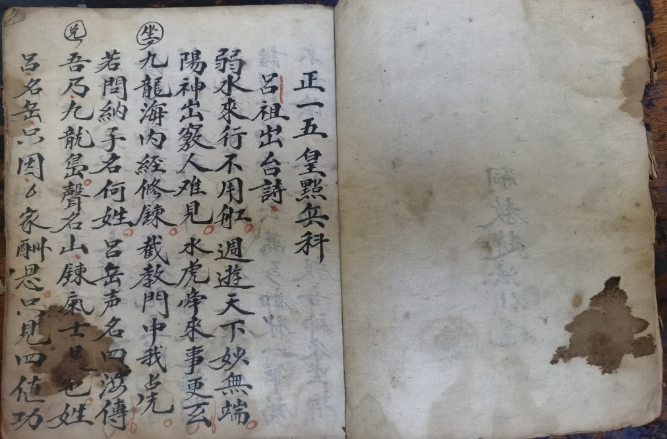 正一五皇點兵科
呂祖出台詩
弱水來行不用舡 週遊天下妙無端
陽神出竅人难見 水虎牽來事更玄
坐 九龍海内經修鍊 截教門中我占先
若問納子名何姓 呂岳声名四海傳
兄 吾乃九龍島聲名山鍊氣士是也姓
呂名岳只因 家酬恩只見四值功